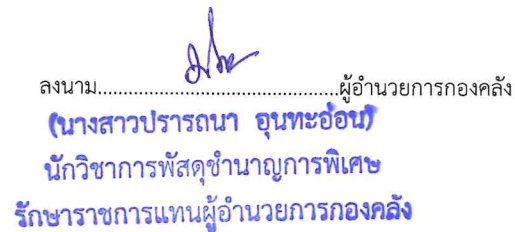 ลงนาม............................................ผู้อำนวยการกองคลัง
(นางสาวปรารถนา อุนทะอ่อน)
นักวิชาการพัสดุชำนาญการพิเศษ
รักษาราชการแทนผู้อำนวยการกองคลัง